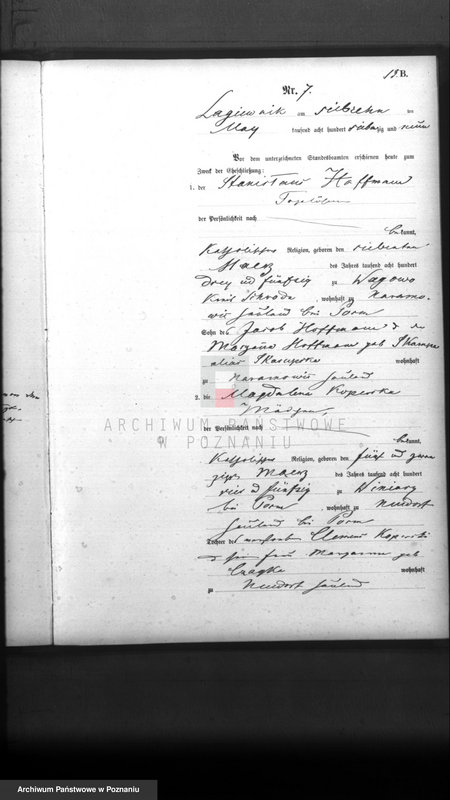 19. B.
Nr. 7.
Lagiewnik am siebzehn ten
May tausend acht hundert siebenzig und neun
Vor dem unterzeichneten Standesbeamten erschienen heute zum
Zweck der Eheschließung:
1. der Stanislaus Hoffmann
der Persönlichkeit nach
bekannt,
Katholischer Religion, geboren den siebenten
Maerz des Jahres tausend acht hundert
drey und fünfzig zu Wagowo
Kreis Schroda, wohnhaft zu Naramo-
wice Hauland bei Posen
Sohn des Jacob Hoffmann
Maryana Hoffmann geb
alias wohnhaft
zu Naramowice Hauland
2. die Magdalena Koperska
Mädchen
ARCHIWUM PAŃSTWOWE
W POZNANIU
der Persönlichkeit nach
bekannt,
Katholischer Religion, geboren den fünf und zwan
zigs Maerz des Jahres tausend acht hundert
vier und fünfzig zu Winiary
bei Posen wohnhaft zu Neudorf
Hauland bei Posen
Tochter des verstorbenen Clemens Koperski
Frau Maryanna geb
wohnhaft
zu Neudorf Hauland
Archiwum Państwowe w Poznaniu